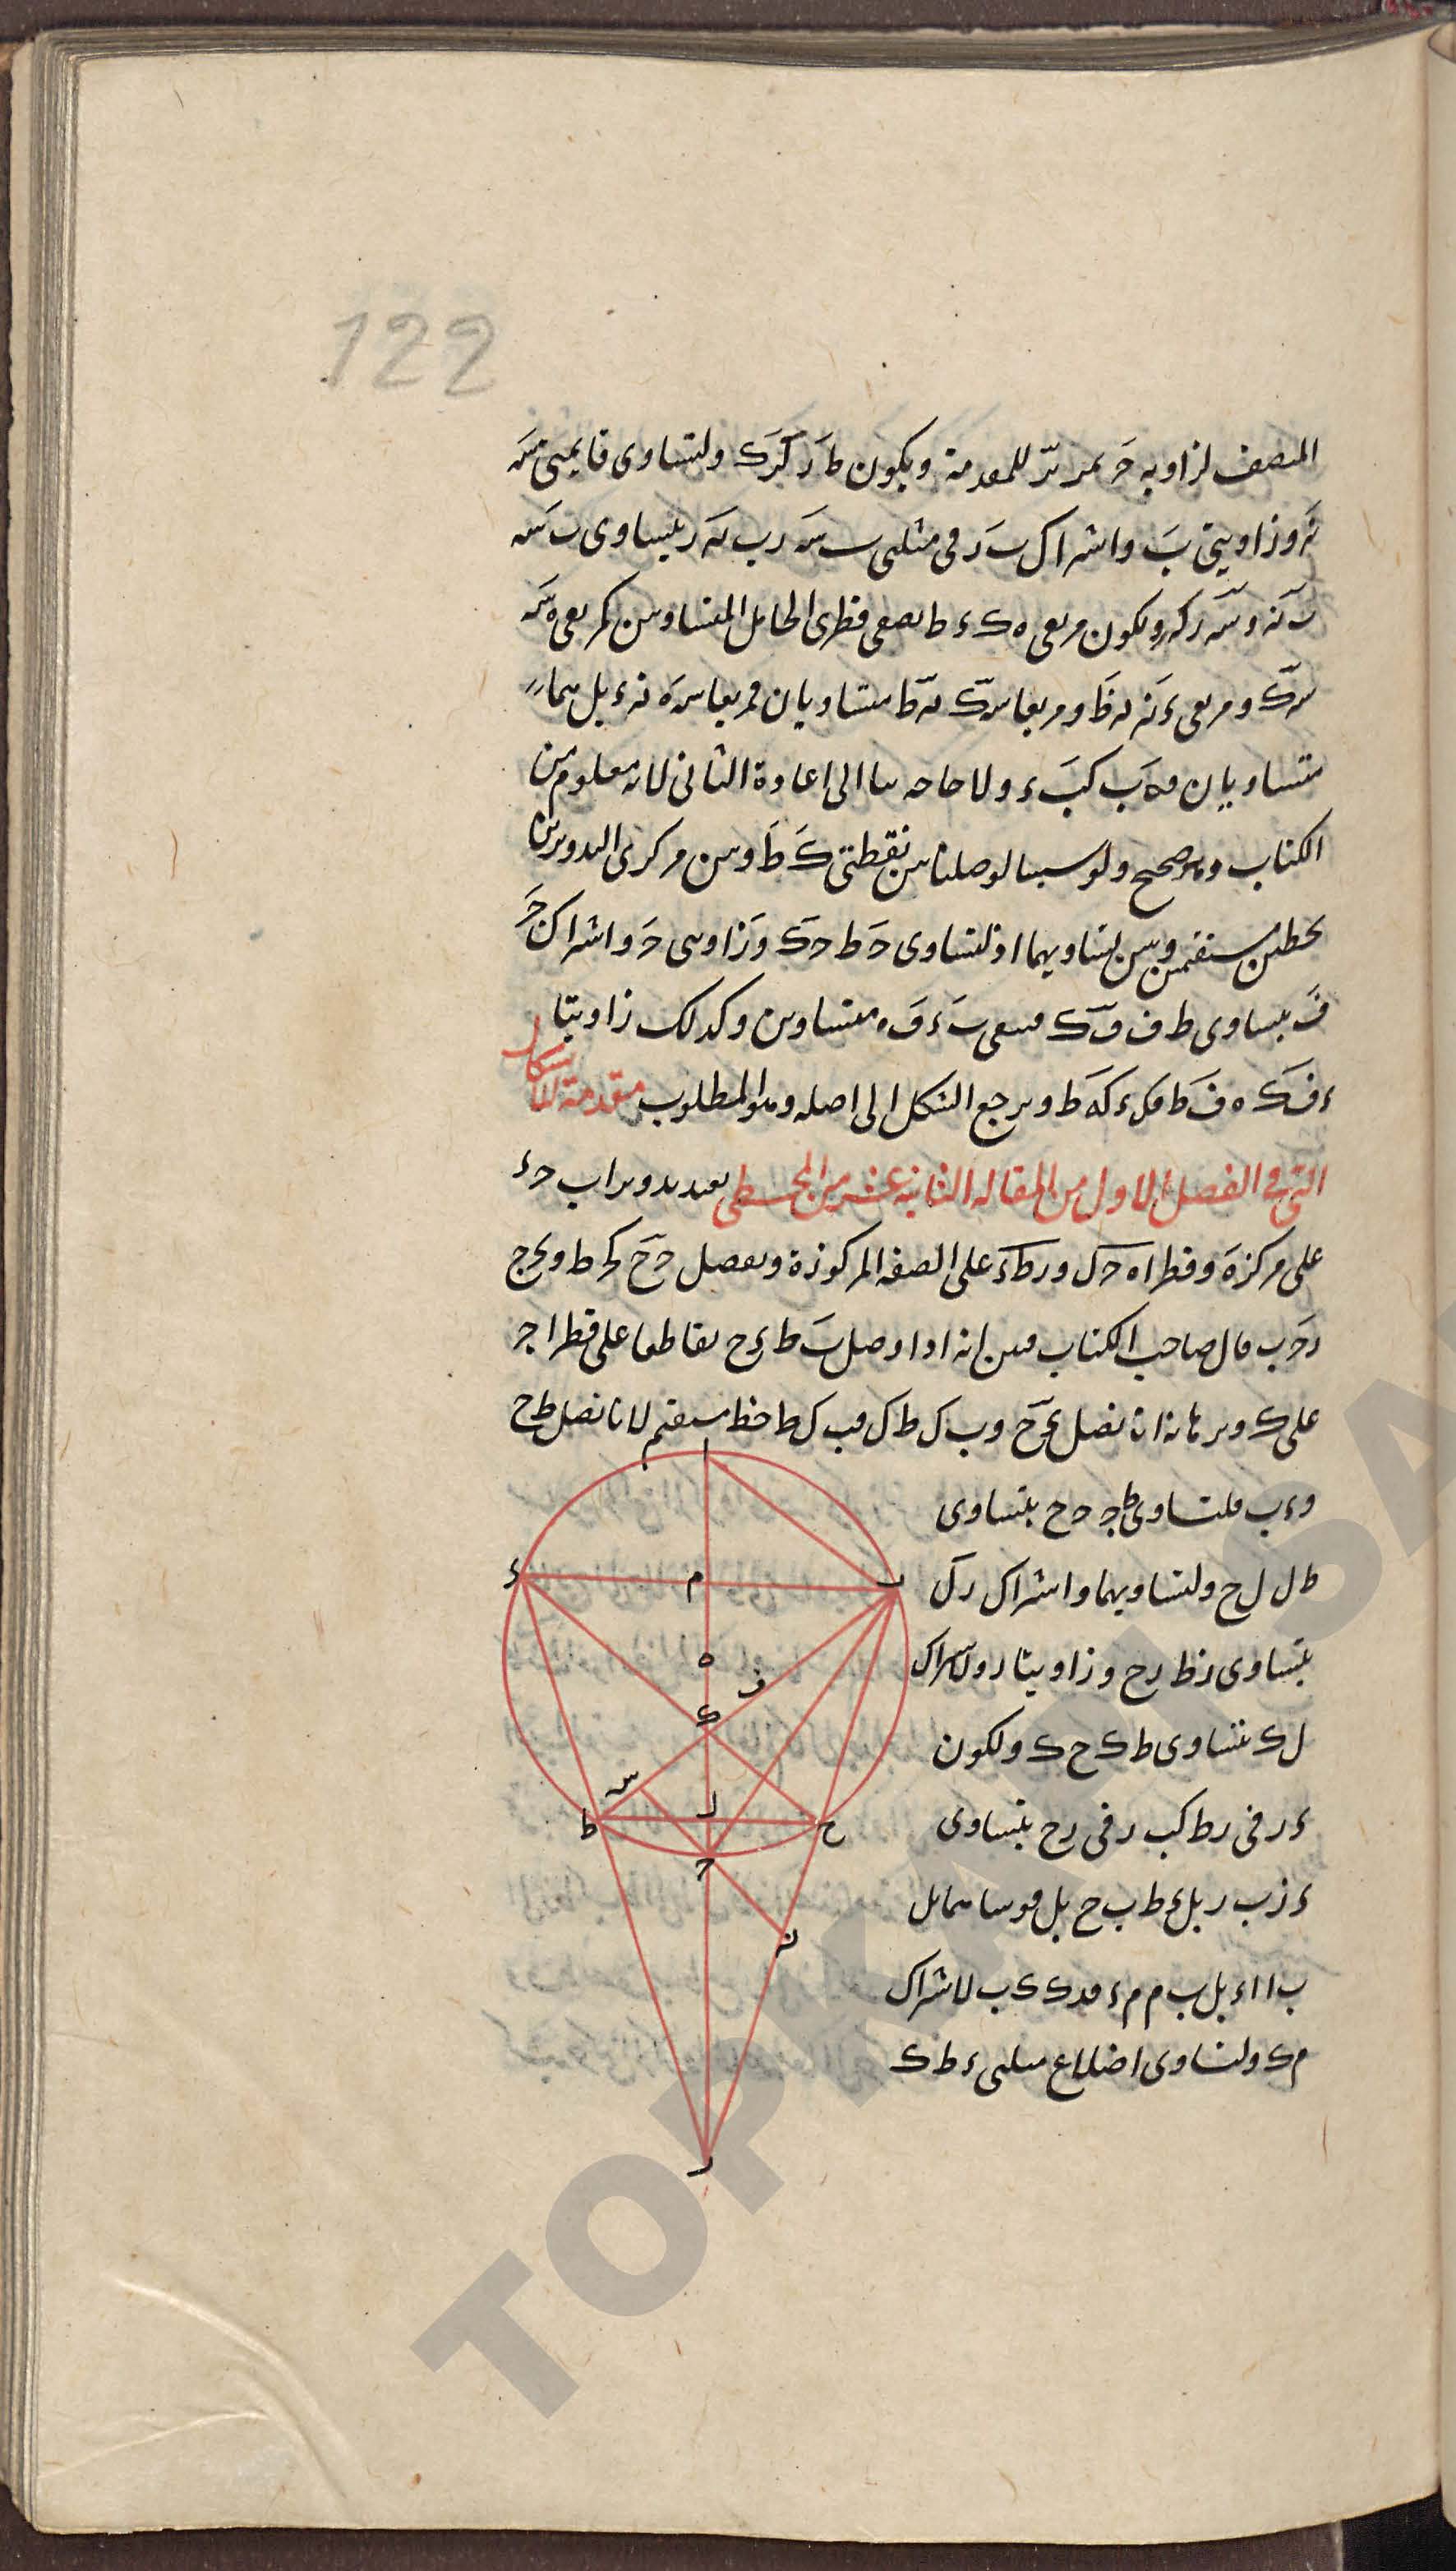 122
المنصف لزاويه حَ يمر بـَر للمقدمة ويكون طَ رَ كَرَك ولتساوى قايمتى سَه
نَه وزاويتى بَ واشراك بَ رَ فى مثلثى ب سَه ر ب نَه ر يتساوى ب سَه
ب نَه وسَه ر نَه ر ولكون مربعى ه ك ء ط نصفى قطرى الحامل المتساويين كمربعى ه سَه
سَه ك ومربعى ء نَه نَه ط ومربعا سَه ك نَه ط متساويان فمربعا سَه ه نَه ء بل هما
متساويان فه ب كب ء ولا حاجه بنا الى اعادة الثانى لانه معلوم من
الكتاب وهو صحيح ولو شينا لوصلنا بين نقطتى كَ طَ وبين مركزى التدويرين
بخطين مستقيمين وبين تساويهما اذ لتساوى حَ ط حك وزاويتى حَ واشراك حَ
فَ يتساوى ط ف ف ك فيبقى ب ء ف ه متساويين وكذلك زاويتا
ء ف ك ه ف ط فك ء كه ط ويرجع الشكل الى اصله وهو المطلوب مقدمة للاشكال
التى فى الفصل الاول من المقاله الثانيه عشر من المجسطى نعيد تدوير اب حء
على مركز ه وقطر اه حل ورطء على الصفه المركوزة ونفصل حح كحط ونخرج
رحب قال صاحب الكتاب فبين انه اذا وصل ب ط ءح تقاطعا على قطر ا ج
على ك وبرهانه ان نصل ء ك ح وب ك ط ك فب ك ط خط مستقيم لانا نصل ط ح
وء ب فلتساوى ط ح ح ح يتساوى
ط ل ل ح ولتساويهما واشراك رل
يتساوى رط رح وزاويتا ر ولاشراك
ل ك يتساوى ط ك ح ك ولكون
ء ر فى رط كب ر فى رح يتساوى
ء ر ب ر بل ء ط ب ح بل قوسا هما بل
ب ا ا ء بل ب م م ء فدك ك ب لاشراك
م ك ولتساوى اضلاع مثلثى ء ط ك
ا
ء
م
ب
ه
ف
ك
س
ط
ل
ح
ج
ن
ر
TOPKAPI SA